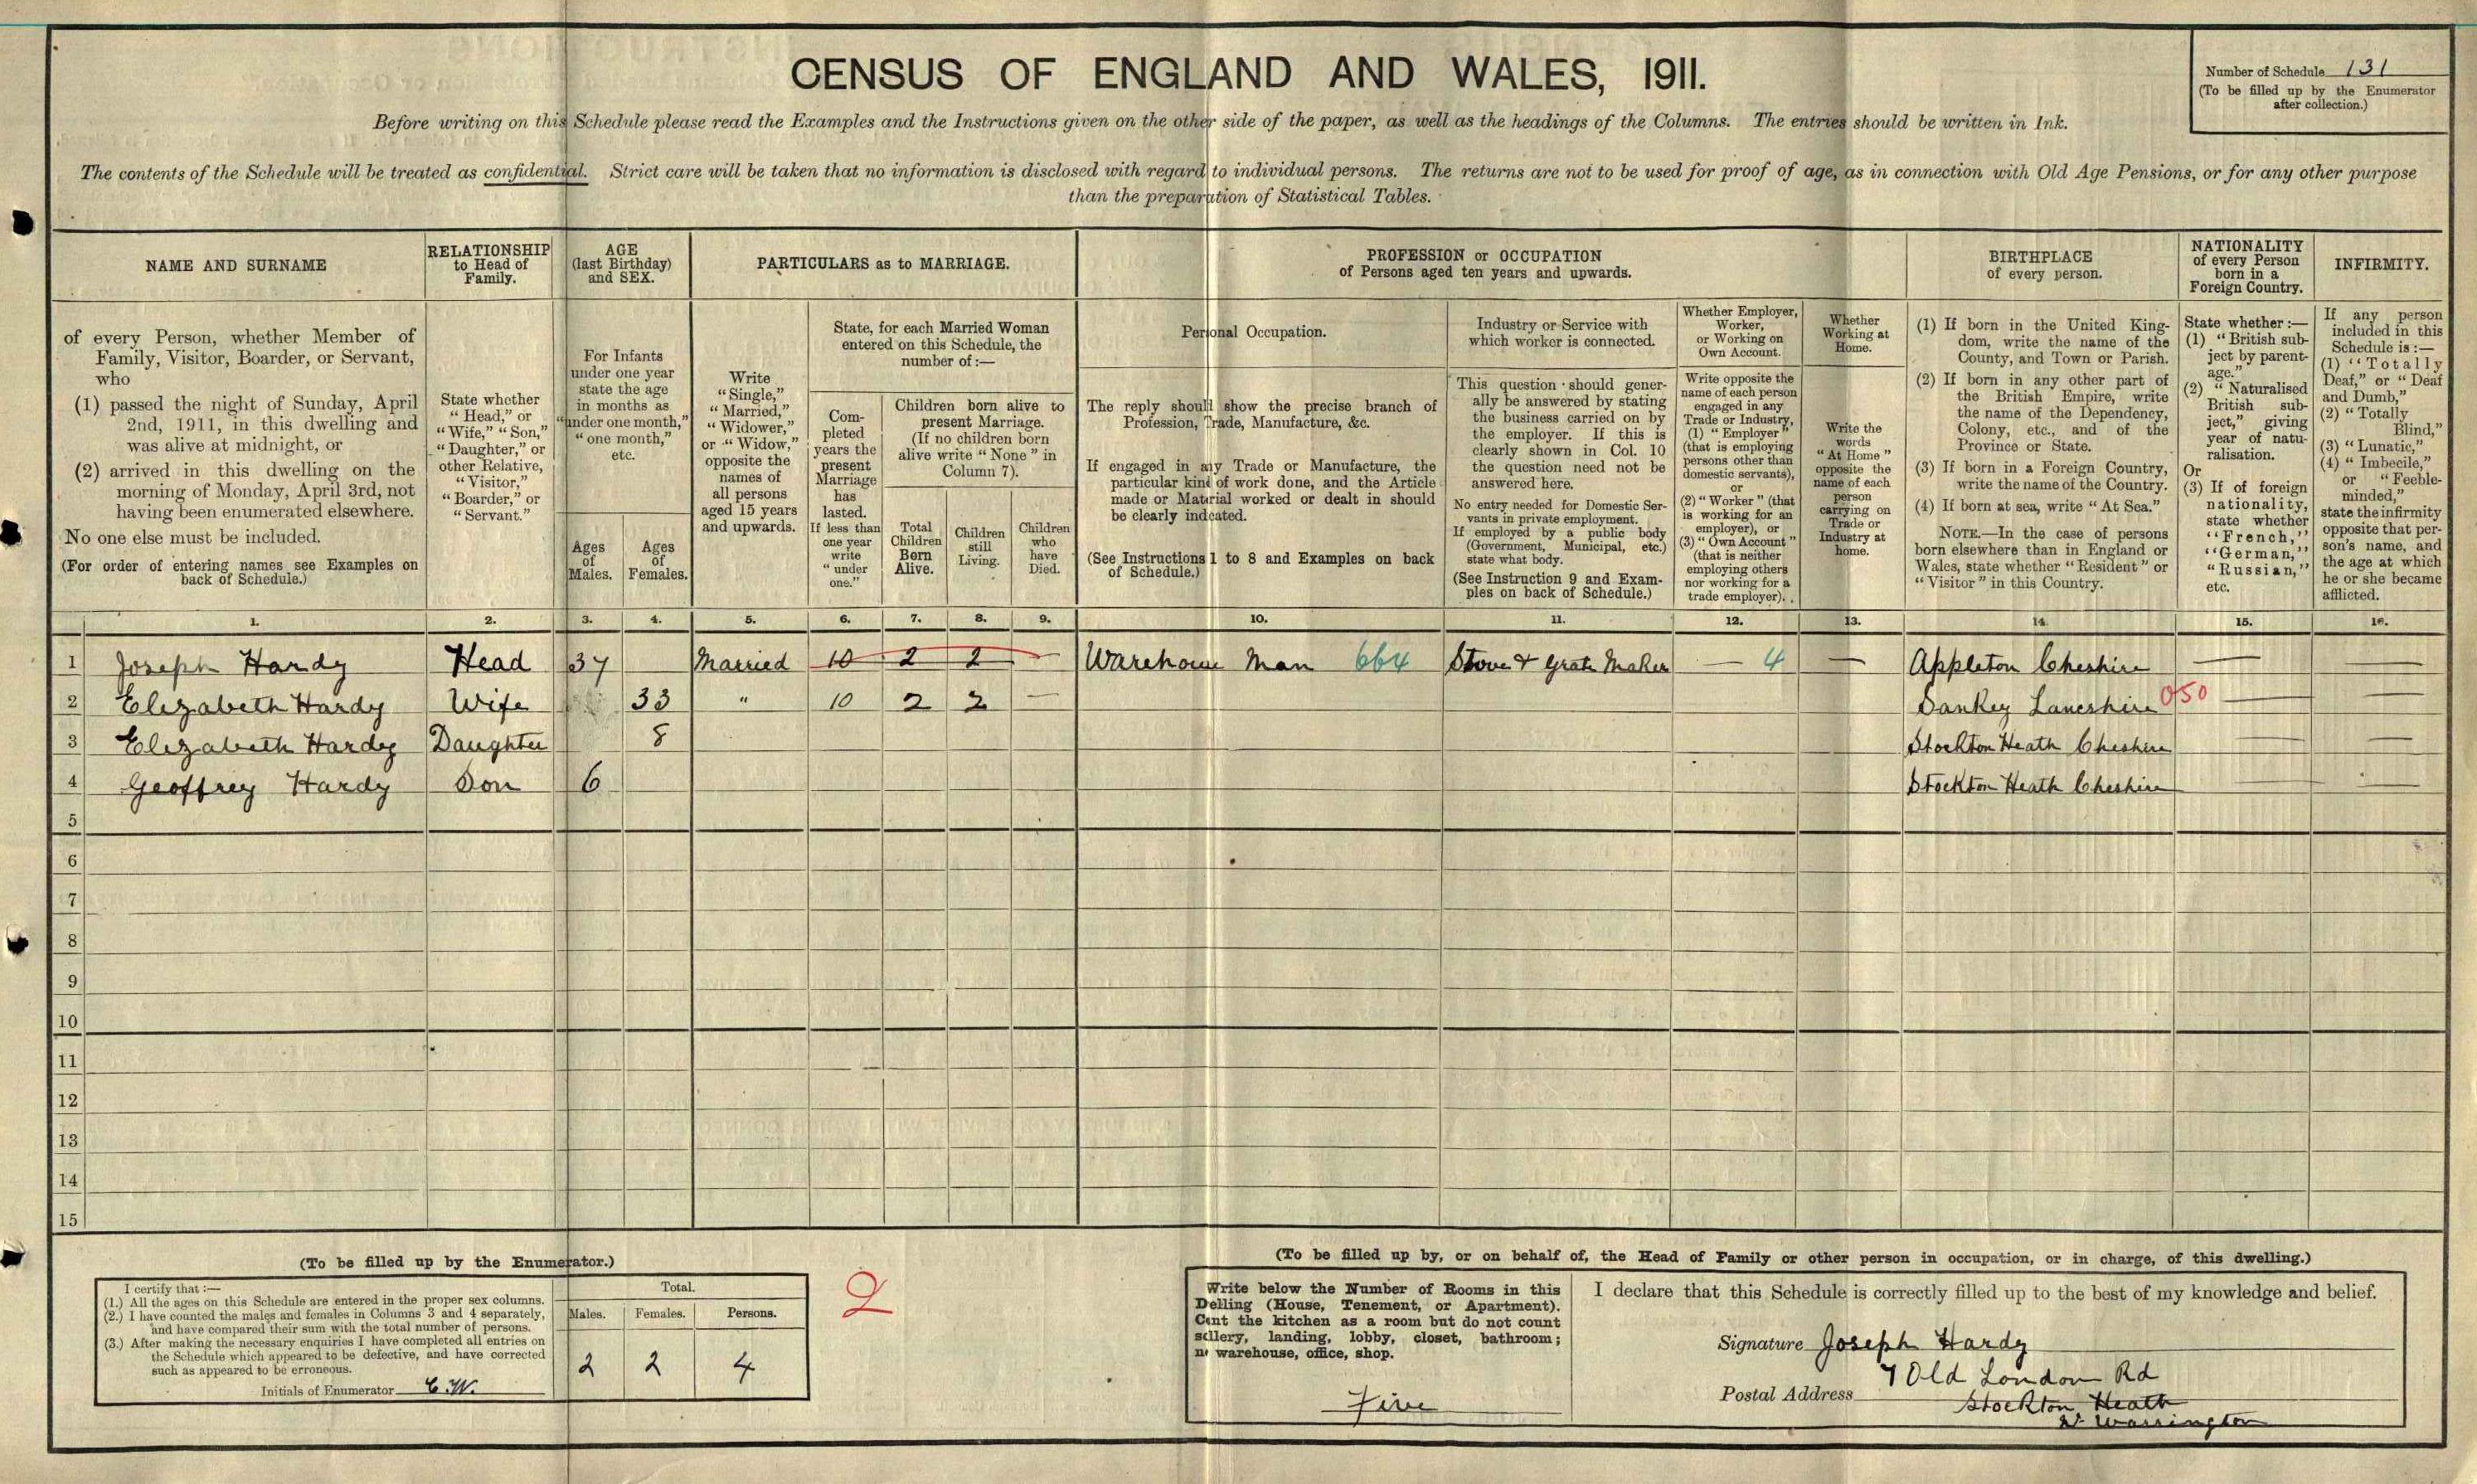 CENSUS OF ENGLAND AND WALES, 1911.
Number of Schedule 131
(To be filled up by the Enumerator
after collection.)
Before writing on this Schedule please read the Examples and the Instructions given on the other side of the paper, as well as the headings of the Columns. The entries should be written in Ink.
The contents of the Schedule will be treated as confidential. Strict care will be taken that no information is disclosed with regard to individual persons. The returns are not to be used for proof of age, as in connection with Old Age Pensions, or for any other purpose
than the preparation of Statistical Tables.
NAME AND SURNAME
of every Person, whether Member of
Family, Visitor, Boarder, or Servant,
who
(1) passed the night of Sunday, April
2nd, 1911, in this dwelling and
was alive at midnight, or
(2) arrived in this dwelling on the
morning of Monday, April 3rd, not
having been enumerated elsewhere.
No one else must be included.
(For order of entering names see Examples on
back of Schedule.)
RELATIONSHIP
to Head of
Family.
State whether
"Head," or
"Wife," "Son,"
"Daughter," or
other Relative,
"Visitor,"
"Boarder," or
"Servant."
AGE
(last Birthday)
and SEX.
For Infants
under one year
state the age
in months as
"under one month,"
"one month,"
etc.
Ages
of
Males.
Ages
of
Females.
PARTICULARS as to MARRIAGE.
Write
"Single,"
"Married,"
"Widower,"
or "Widow,"
opposite the
names of
all persons
aged 15 years
and upwards.
State, for each Married Woman
entered on this Schedule, the
number of:—
Com-
pleted
years the
present
Marriage
has
lasted.
If less than
one year
write
"under
one."
Children born alive to
present Marriage.
(If no children born
alive write "None" in
Column 7).
Total
Children
Born
Alive.
Children
still
Living.
Children
who
have
Died.
PROFESSION or OCCUPATION
of Persons aged ten years and upwards.
Personal Occupation.
The reply should show the precise branch of
Profession, Trade, Manufacture, &c.
If engaged in any Trade or Manufacture, the
particular kind of work done, and the Article
made or Material worked or dealt in should
be clearly indicated.
(See Instructions 1 to 8 and Examples on back
of Schedule.)
Industry or Service with
which worker is connected.
This question should gener-
ally be answered by stating
the business carried on by
the employer. If this is
clearly shown in Col. 10
the question need not be
answered here.
No entry needed for Domestic Ser-
vants in private employment.
If employed by a public body
(Government, Municipal, etc.)
state what body.
(See Instruction 9 and Exam-
ples on back of Schedule.)
Whether Employer,
Worker,
or Working on
Own Account.
Write opposite the
name of each person
engaged in any
Trade or Industry,
(1) "Employer"
(that is employing
persons other than
domestic servants),
or
(2) "Worker" (that
is working for an
employer), or
(3) "Own Account"
(that is neither
employing others
nor working for a
trade employer).
Whether
Working at
Home.
Write the
words
"At Home"
opposite the
name of each
person
carrying on
Trade or
Industry at
home.
BIRTHPLACE
of every person.
(1) If born in the United King-
dom, write the name of the
County, and Town or Parish.
(2) If born in any other part of
the British Empire, write
the name of the Dependency,
Colony, etc., and of the
Province or State.
(3) If born in a Foreign Country,
write the name of the Country.
(4) If born at sea, write "At Sea."
NOTE.—In the case of persons
born elsewhere than in England or
Wales, state whether "Resident" or
"Visitor" in this Country.
NATIONALITY
of every Person
born in a
Foreign Country.
State whether:—
(1) "British sub-
ject by parent-
age."
(2) "Naturalised
British sub-
ject," giving
year of natu-
ralisation.
Or
(3) If of foreign
nationality,
state whether
"French,"
"German,"
"Russian,"
etc.
INFIRMITY.
If any person
included in this
Schedule is:—
(1) "Totally
Deaf," or "Deaf
and Dumb,"
(2) "Totally
Blind,"
(3) "Lunatic,"
(4) "Imbecile,"
or "Feeble-
minded,"
state the infirmity
opposite that per-
son's name, and
the age at which
he or she became
afflicted.
1. 2. 3. 4. 5. 6. 7. 8. 9. 10. 11. 12. 13. 14. 15. 16.
1 Joseph Hardy Head 37 Married 10 2 2 — Warehouse Man 664 Stove & Grate Maker — 4 — Appleton Cheshire — —
2 Elizabeth Hardy Wife 33 " 10 2 2 — Sankey Lancshire 050 — —
3 Elizabeth Hardy Daughter 8 Stockton Heath Cheshire — —
4 Geoffrey Hardy Son 6 Stockton Heath Cheshire — —
5
6
7
8
9
10
11
12
13
14
15
(To be filled up by the Enumerator.)
I certify that:—
(1.) All the ages on this Schedule are entered in the proper sex columns.
(2.) I have counted the males and females in Columns 3 and 4 separately,
and have compared their sum with the total number of persons.
(3.) After making the necessary enquiries I have completed all entries on
the Schedule which appeared to be defective, and have corrected
such as appeared to be erroneous.
Initials of Enumerator C.W.
Total.
Males. Females. Persons.
2 2 4
2
(To be filled up by, or on behalf of, the Head of Family or other person in occupation, or in charge, of this dwelling.)
Write below the Number of Rooms in this
Delling (House, Tenement, or Apartment).
Cent the kitchen as a room but do not count
scllery, landing, lobby, closet, bathroom;
n warehouse, office, shop.
Five
I declare that this Schedule is correctly filled up to the best of my knowledge and belief.
Signature Joseph Hardy
Postal Address 7 Old London Rd
Stockton Heath
Nr Warrington